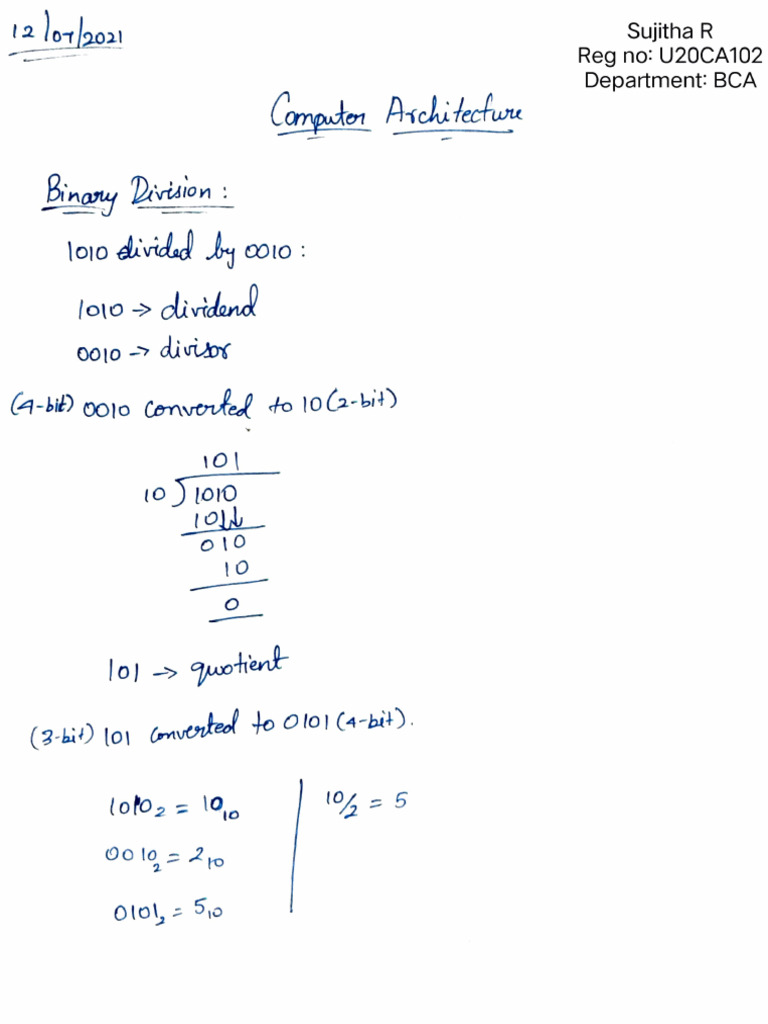 12/07/2021
Sujitha R
Reg no: U20CA102
Department: BCA
Computer Architecture
Binary Division:
1010 divided by 0010:
1010 → dividend
0010 → divisor
(4-bit) 0010 converted to 10 (2-bit)
101
10 ) 1010
10↓↓
010
10
0
101 → quotient
(3-bit) 101 converted to 0101 (4-bit).
1010₂ = 10₁₀
10/2 = 5
0010₂ = 2₁₀
0101₂ = 5₁₀